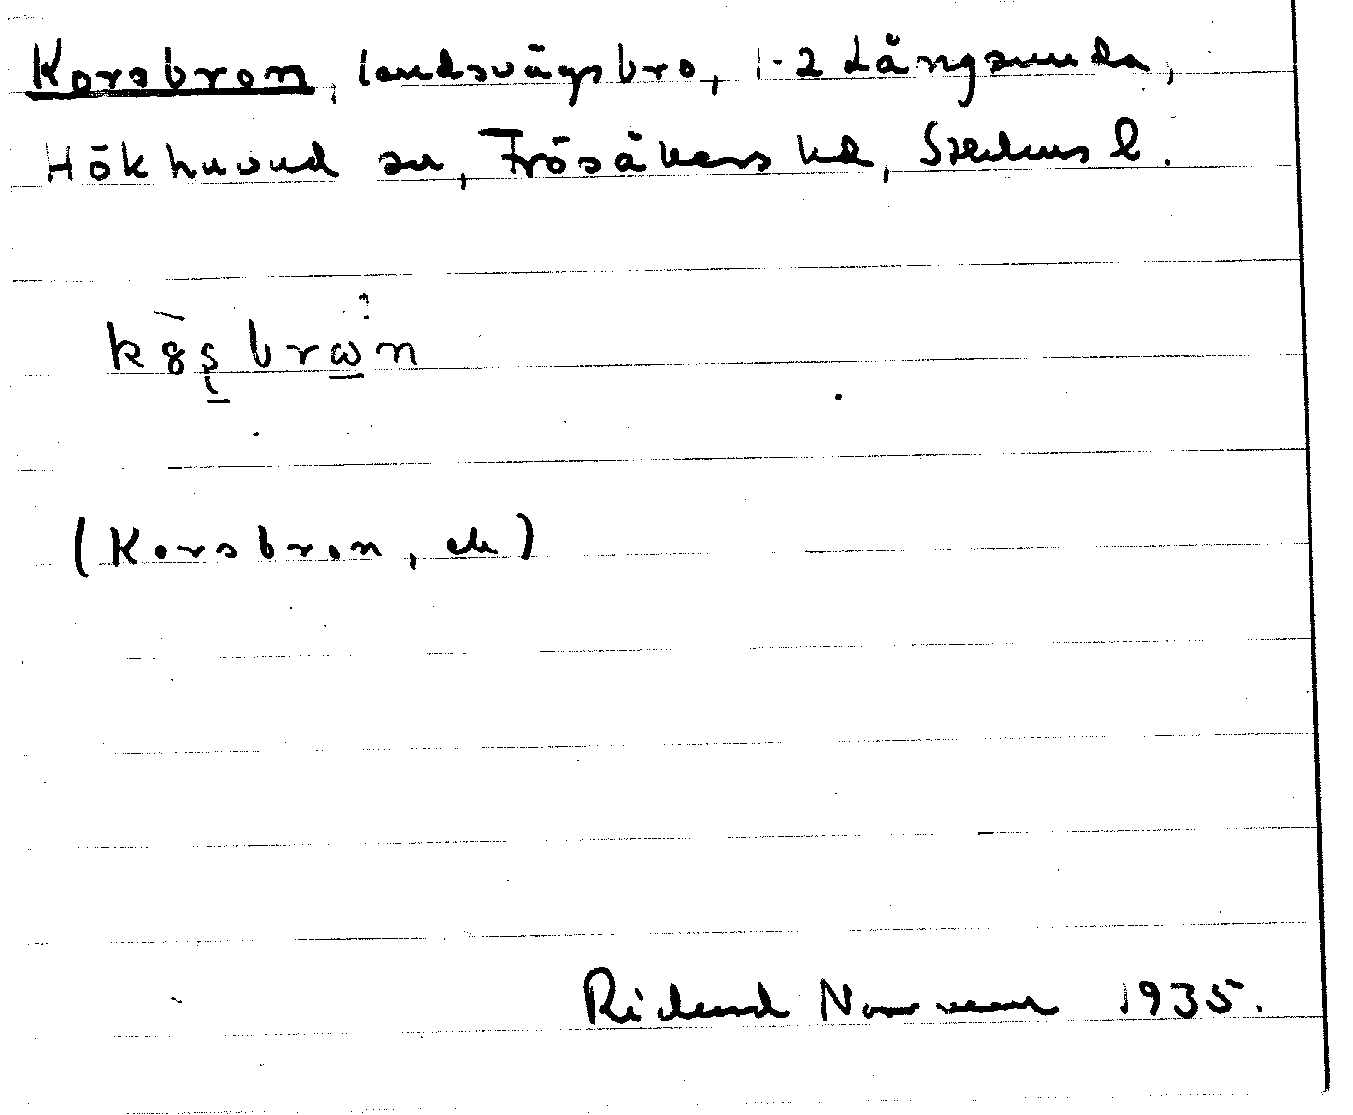 Korsbron, landsvägsbro, 1-2 Långsunda,
Hökhuvud sn, Frösåkers hd, Sthlms l.
(Korsbron, ek)
Richard Norrman 1935.